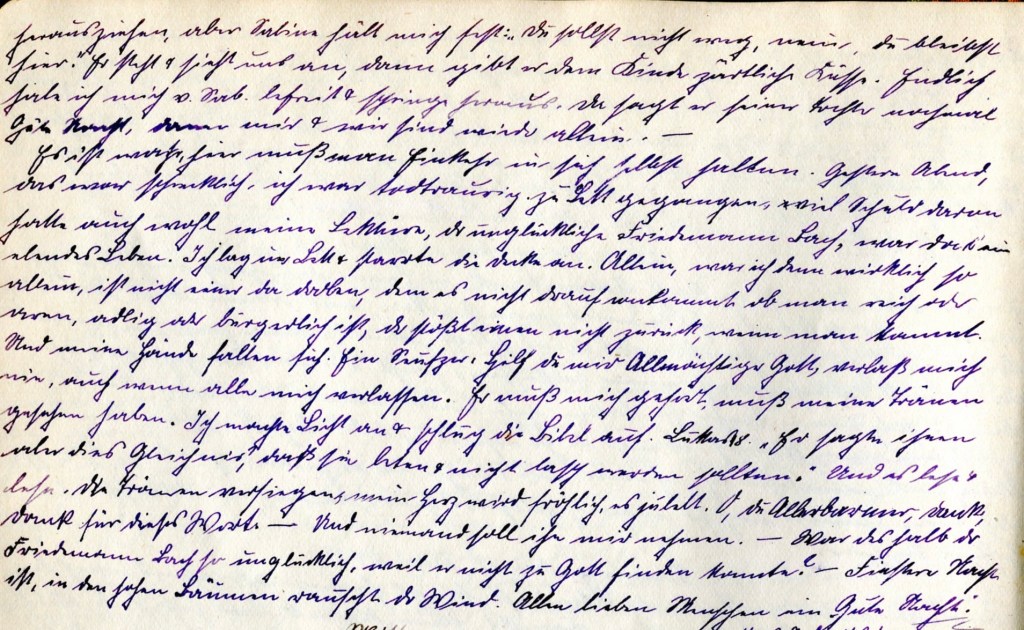 herausziehen, aber Sabine hält mich fest: „Du sollst nicht weg, nein, du bleibst
hier." Er steht & sieht uns an, dann gibt er dem Kinde zärtliche Küsse. Endlich
habe ich mich v. Sab. befreit & springe heraus. Da sagt er seiner Tochter nochmal
Gute Nacht, dann mir & wir sind wieder allein. —
Es ist wahr, hier muß man Einkehr in sich selbst halten. Gestern Abend,
das war schrecklich, ich war todtraurig zu Bett gegangen, viel Schuld daran
hatte auch wohl meine Lektüre, der unglückliche Friedemann Bach, war doch ein
elendes Leben. Ich lag im Bett & starrte die Decke an. Allein, war ich denn wirklich so
allein, ist nicht einer da droben, dem es nicht drauf ankommt ob man reich oder
arm, adlig oder bürgerlich ist, der stößt einen nicht zurück, wenn man kommt.
Und meine Hände falten sich. Ein Seufzer: Hilf du mir Allmächtiger Gott, verlaß mich
nie, auch wenn alle mich verlassen. Er muß mich gehört, muß meine Tränen
gesehen haben. Ich machte Licht an & schlug die Bibel auf. Lukas 18. „Er sagte ihnen
aber dies Gleichnis, daß sie beten & nicht lasch werden sollten." Und ich lese &
lese. Die Tränen versiegen, mein Herz wird fröhlich, es jubelt. O, du Allerbarmer, danke,
Dank für dieses Worte — Und niemand soll ihn mir nehmen. — War deshalb der
Friedemann Bach so unglücklich, weil er nicht zu Gott finden konnte? — Finstere Nacht
ist, in den hohen Bäumen rauscht der Wind. Allen lieben Menschen ein Gute Nacht.